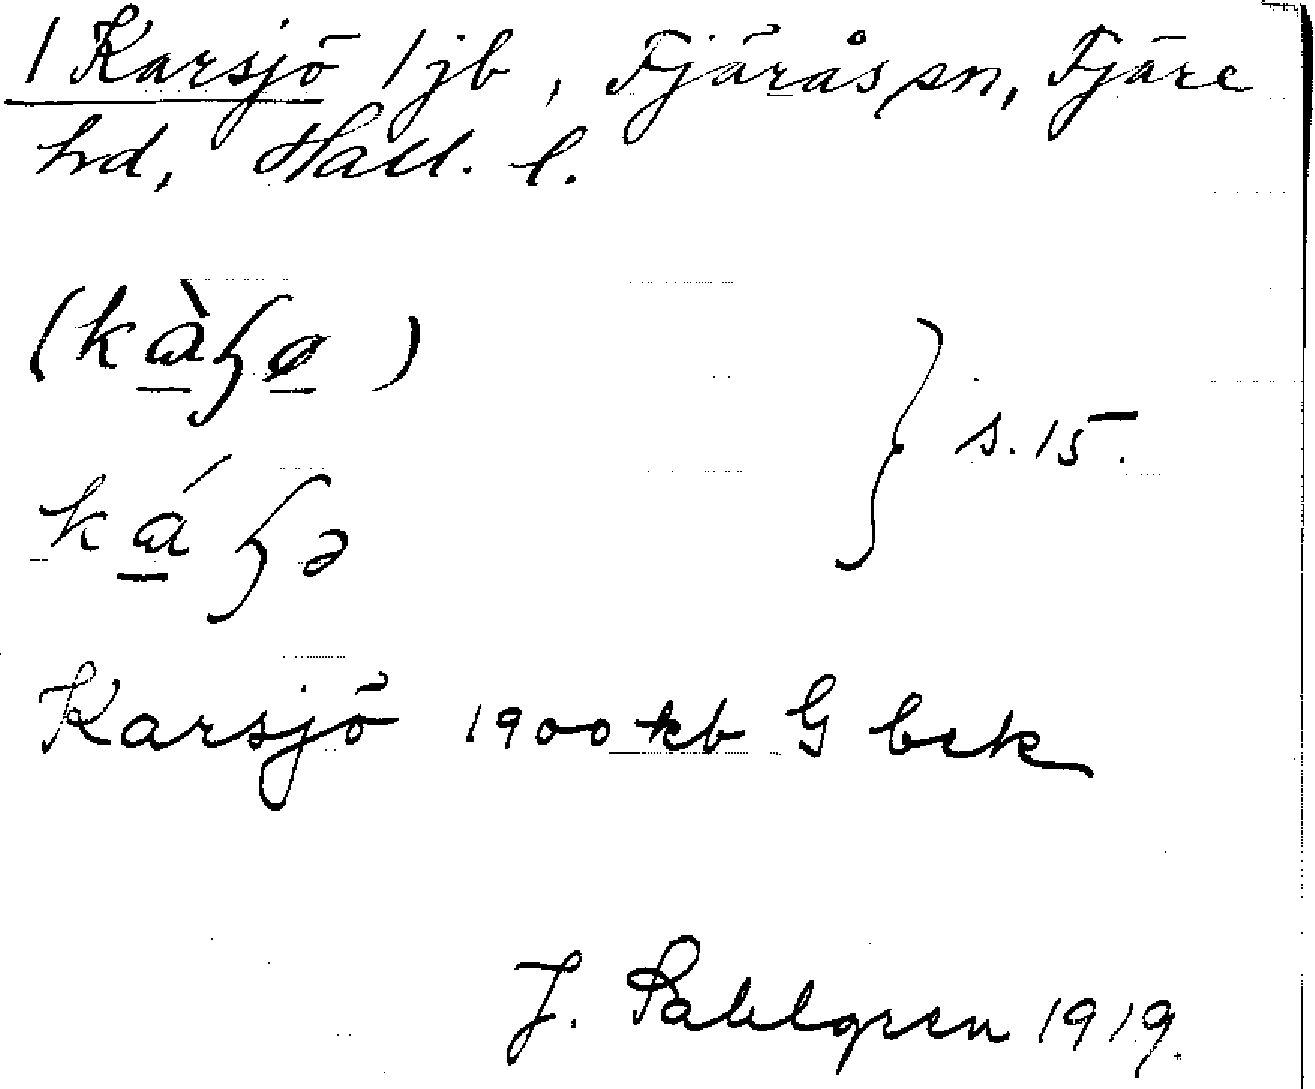 1 Karsjö 1 jb, Fjärås sn, Fjäre
hd, Hall. l.
(kàɧø)
káɧə
s. 15.
Karsjö 1900 kb G bek
J. Sahlgren 1919.